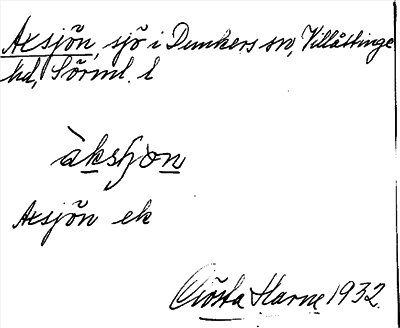 Axsjön, sjö i Dunkers sn, Villåttinge
hd, Sörml. l
àksjon
Axsjön ek
Gösta Harne 1932.